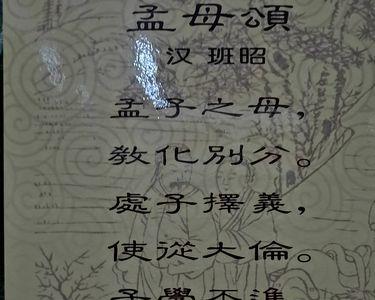 孟母頌
汉 班昭
孟子之母，
教化别分。
處子擇義，
使從大倫。
子學不進